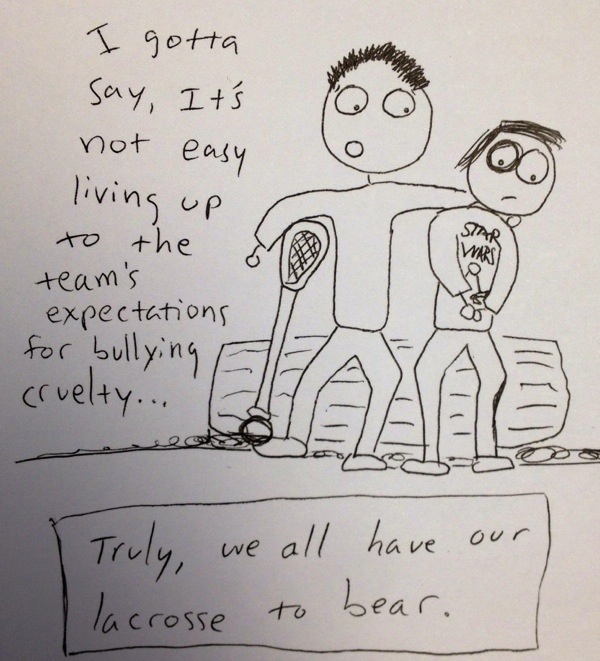 I gotta
say, It's
not easy
living up
to the
team's
expectations
for bullying
cruelty...
STAR
WARS
Truly, we all have our
lacrosse to bear.